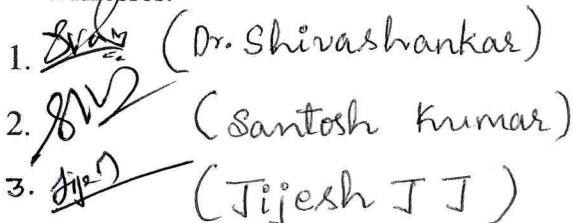 1. (Dr. Shivashankar)
2. (Santosh Kumar)
3. Jijesh (Jijesh J J)